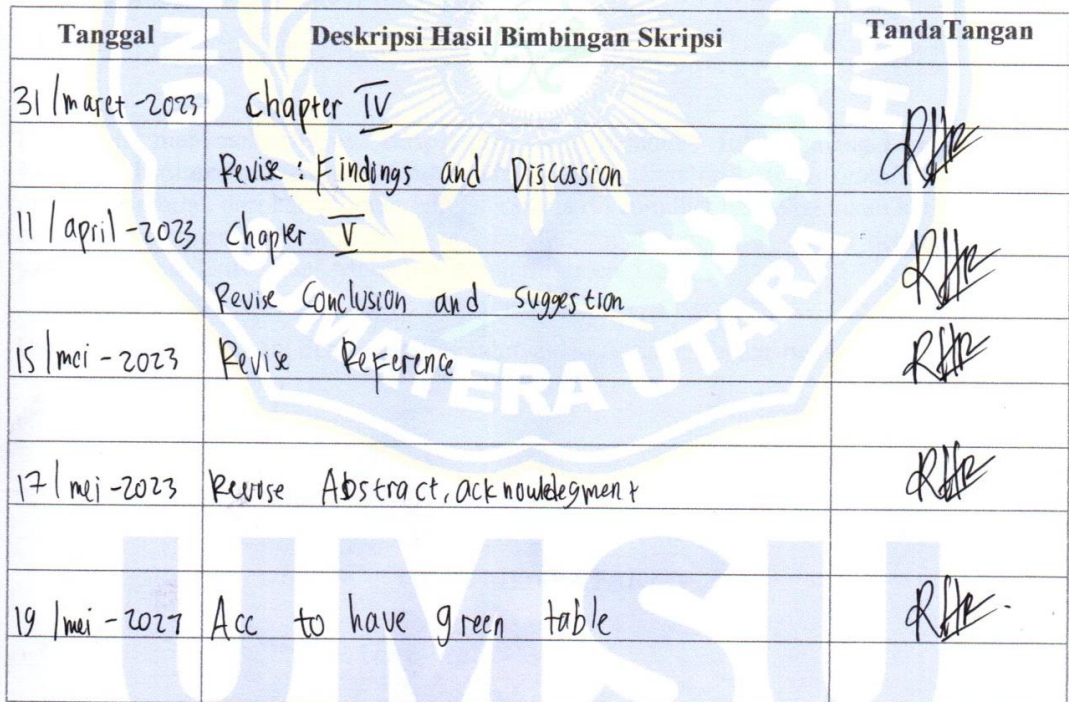 Tanggal Deskripsi Hasil Bimbingan Skripsi TandaTangan
31/maret-2023 Chapter IV
Revise: Findings and Discussion
11/april-2023 Chapter V
Revise Conclusion and suggestion
15/mei-2023 Revise Reference
17/mei-2023 Revise Abstract, acknowledegment
19/mei-2023 Acc to have green table
SUMATERA UTARA
UMSU